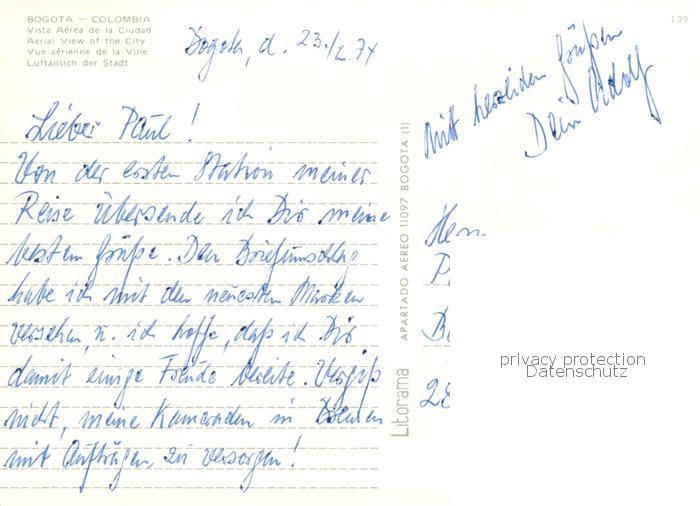 BOGOTA — COLOMBIA
Vista Aérea de la Ciudad
Aerial View of the City
Vue aérienne de la Ville
Luftansich der Stadt
139
Bogota, d. 23./2.74
Lieber Paul!
Von der ersten Station meiner
Reise übersende ich Dir meine
besten Grüße. Den Briefumschlag
habe ich mit den neuesten Marken
versehen, u. ich hoffe, daß ich Dir
damit einige Freude bereite. Vergiß
nicht, meine Kameraden in Bremen
mit Aufträgen zu versorgen!
Mit herzlichen Grüßen
Dein Adolf
Litorama APARTADO AEREO 11097 BOGOTA (1)
Herrn
P
B
28
privacy protection
Datenschutz